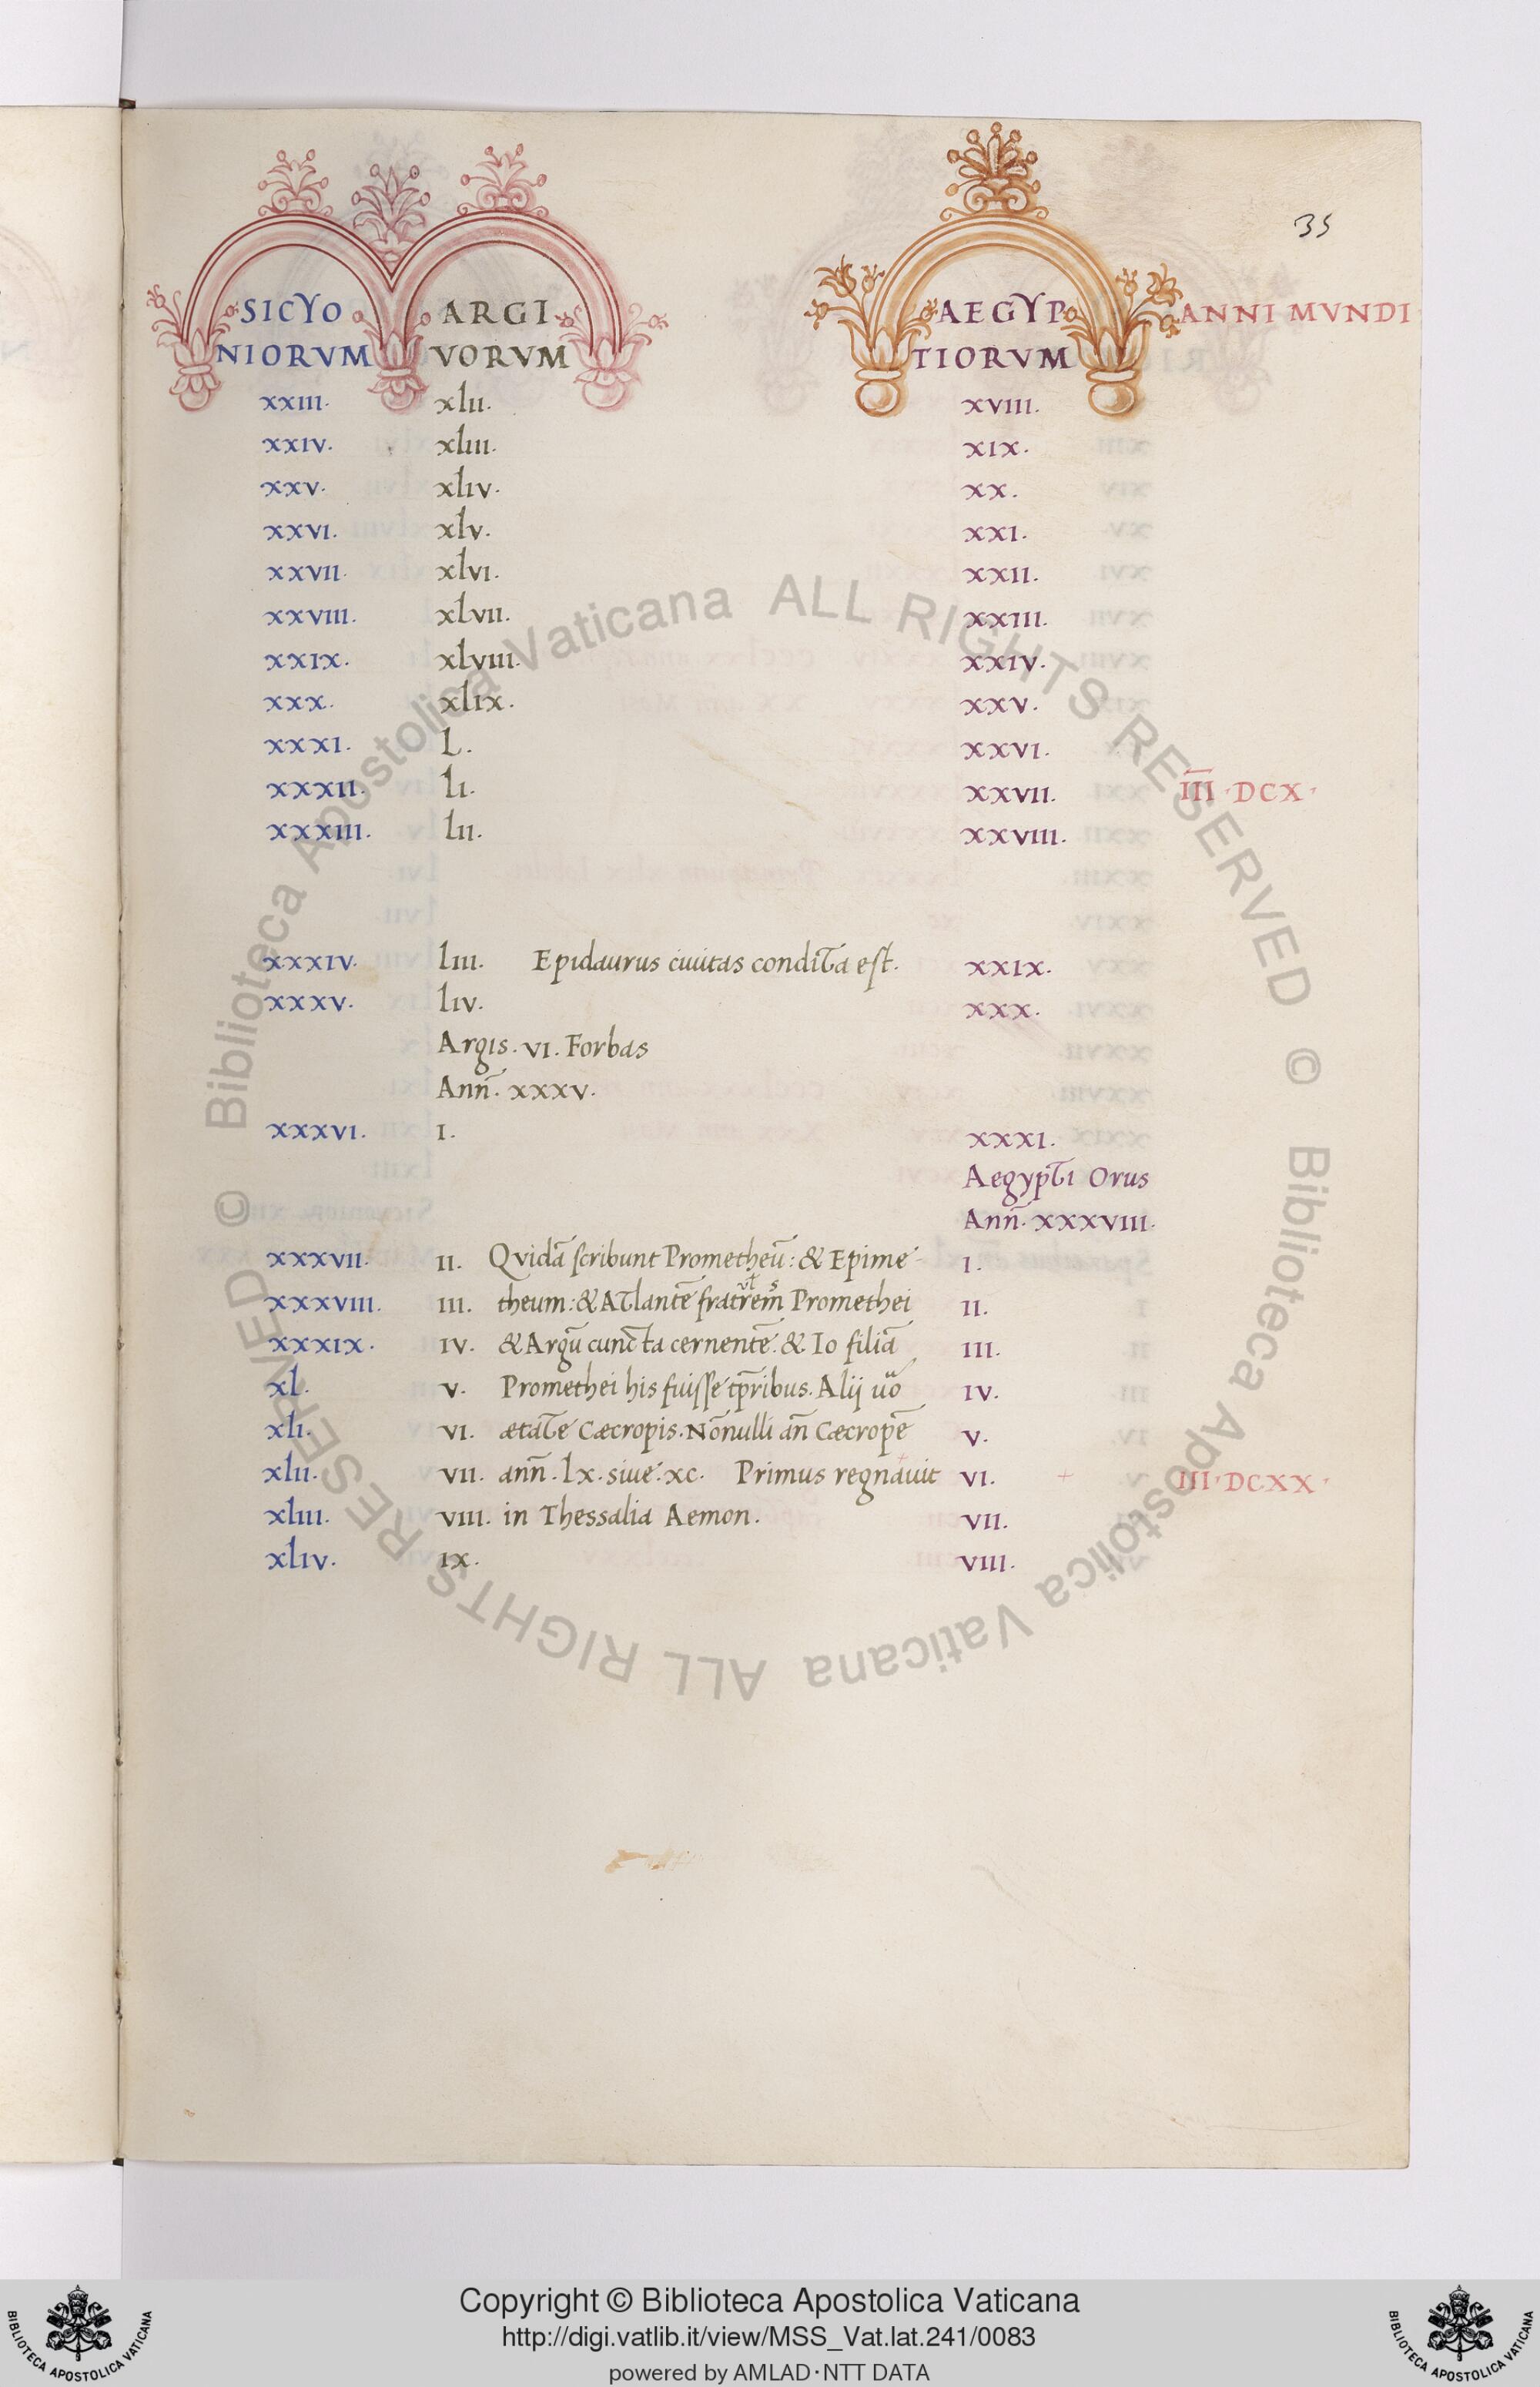 35
SICYO ARGI AEGYP ANNI MVNDI
NIORVM VORVM TIORVM
xxiii. xlii. xviii.
xxiv. xliii. xix.
xxv. xliv. xx.
xxvi. xlv. xxi.
xxvii. xlvi. xxii.
xxviii. xlvii. xxiii.
xxix. xlviii. xxiv.
xxx. xlix. xxv.
xxxi. L. xxvi.
xxxii. li. xxvii. I̅I̅I̅·DCX·
xxxiii. lii. xxviii.
xxxiv. liii. Epidaurus ciuitas condita est. xxix.
xxxv. liv. xxx.
Argis. vi. Forbas
Ann̄. xxxv.
xxxvi. i. xxxi.
Aegypti Orus
Ann̄. xxxviii.
xxxvii. ii. Qvidā scribunt Prometheū: & Epime- i.
xxxviii. iii. theum: & Atlantē fratrem̄ Promethei ii.
xxxix. iv. & Argū cuncta cernentē. & Io filiā iii.
xl. v. Promethei his fuisse tp̄ribus. Alij uō iv.
xli. vi. ætate Cæcropis. Nōnulli an̄ Cæcropē v.
xlii. vii. ann̄. lx. siue. xc. Primus regnauit vi. + III·DCXX·
xliii. viii. in Thessalia Aemon. vii.
xliv. ix. viii.
© Biblioteca Apostolica Vaticana ALL RIGHTS RESERVED © Biblioteca Apostolica Vaticana ALL RIGHTS RESERVED
BIBLIOTECA APOSTOLICA VATICANA
Copyright © Biblioteca Apostolica Vaticana
http://digi.vatlib.it/view/MSS_Vat.lat.241/0083
powered by AMLAD·NTT DATA
BIBLIOTECA APOSTOLICA VATICANA